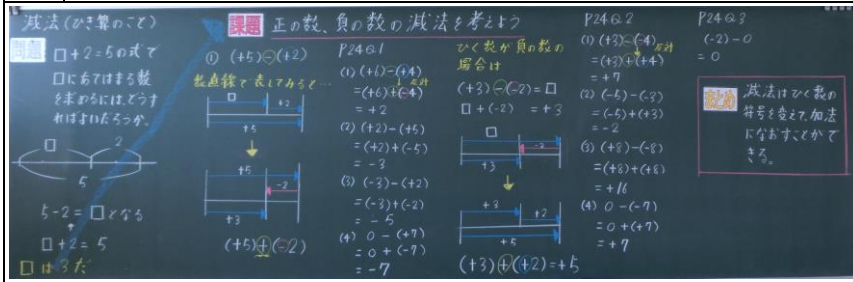 減法(ひき算のこと)
問題
□+2=5の式で
□にあてはまる数
を求めるには、どうす
ればよいだろうか。
□
2
5
5-2=□となる
□+2=5
□は3だ
課題 正の数、負の数の減法を考えよう
① (+5)-(+2)
数直線で表してみると…
□
+2
+5
+5
-2
+3
(+5)+(-2)
P24Q1
(1) (+6)-(+4)
反対
=(+6)+(-4)
=+2
(2) (+2)-(+5)
=(+2)+(-5)
=-3
(3) (-3)-(+2)
=(-3)+(-2)
=-5
(4) 0-(+7)
=0+(-7)
=-7
ひく数が負の数の
場合は
(+3)-(-2)=□
□+(-2) =+3
□
-2
+3
+3
+2
+5
(+3)+(+2)=+5
P24Q2
(1) (+3)-(-4)
反対
=(+3)+(+4)
=+7
(2) (-5)-(-3)
=(-5)+(+3)
=-2
(3) (+8)-(-8)
=(+8)+(+8)
=+16
(4) 0-(-7)
=0+(+7)
=+7
P24Q3
(-2)-0
=0
まとめ
減法はひく数の
符号を変えて、加法
になおすことがで
きる。